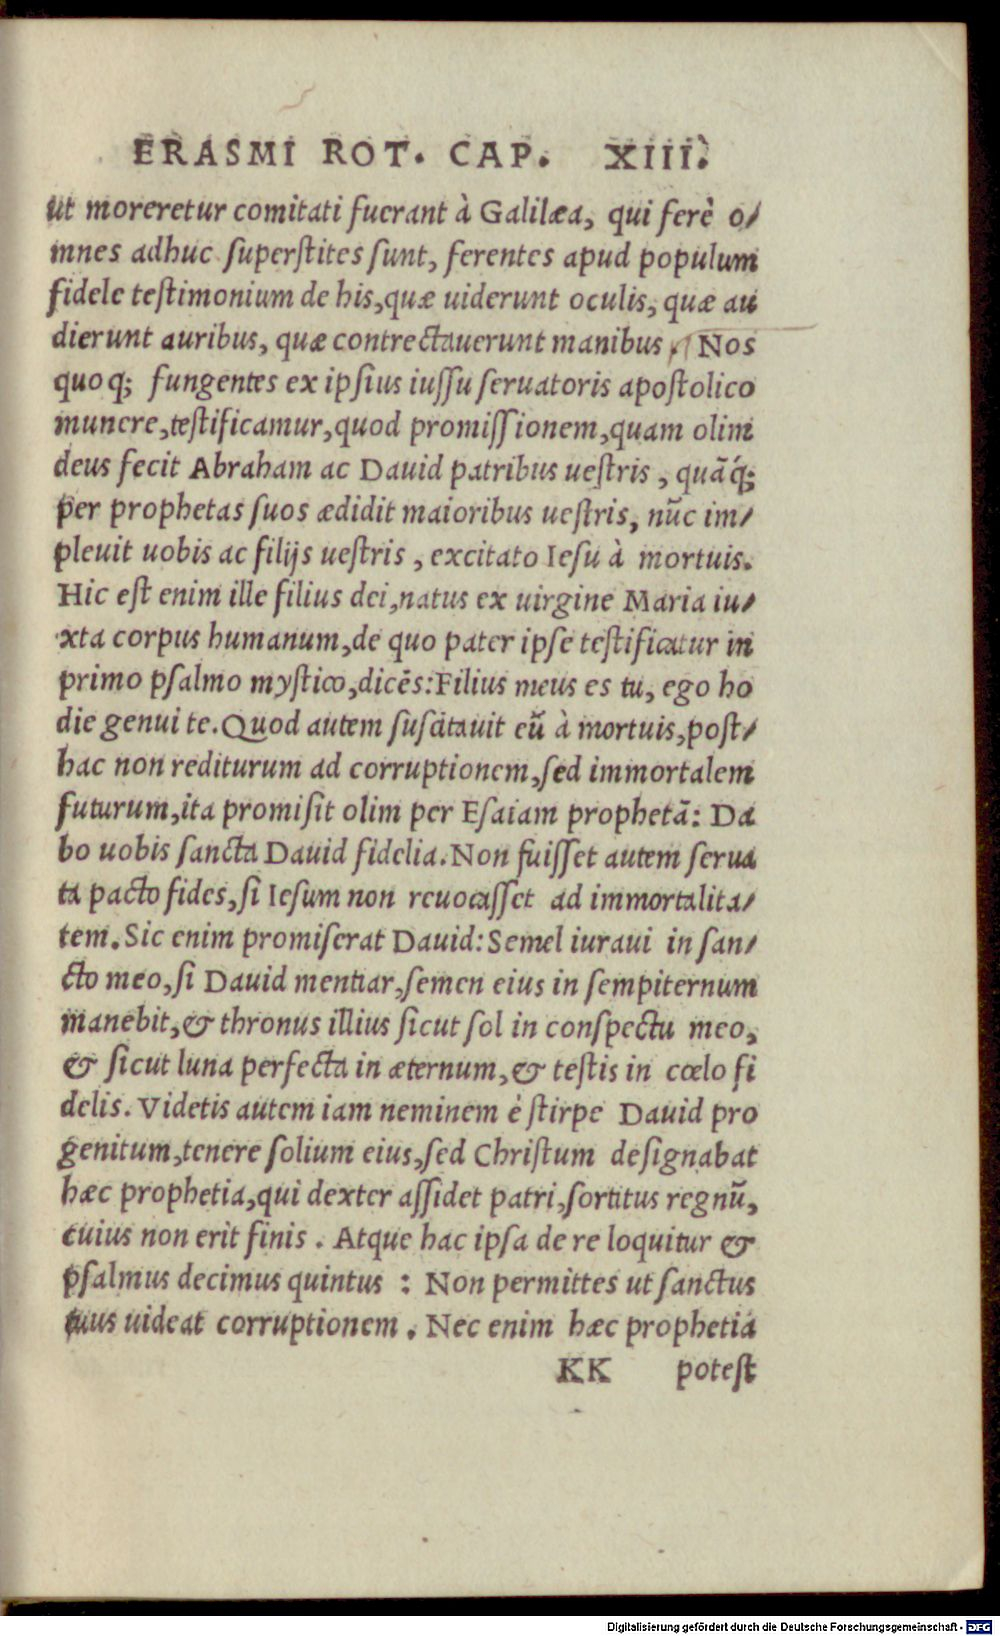 ERASMI ROT. CAP. XIII.
ut moreretur comitati fuerant à Galilæa, qui ferè o/
mnes adhuc superstites sunt, ferentes apud populum
fidele testimonium de his,quæ uiderunt oculis, quæ au
dierunt auribus, quæ contrectauerunt manibus. Nos
quoq; fungentes ex ipsius iussu seruatoris apostolico
munere,testificamur,quod promissionem,quam olim
deus fecit Abraham ac Dauid patribus uestris , quãq́;
per prophetas suos ædidit maioribus uestris, nũc im/
pleuit uobis ac filijs uestris , excitato Iesu à mortuis.
Hic est enim ille filius dei,natus ex uirgine Maria iu/
xta corpus humanum,de quo pater ipse testificatur in
primo psalmo mystico,dicẽs:Filius meus es tu, ego ho
die genui te.Quod autem suscitauit eũ à mortuis,post/
hac non rediturum ad corruptionem,sed immortalem
futurum,ita promisit olim per Esaiam prophetã: Da
bo uobis sancta Dauid fidelia.Non fuisset autem serua
ta pacto fides,si Iesum non reuocasset ad immortalita/
tem.Sic enim promiserat Dauid:Semel iuraui in san/
cto meo,si Dauid mentiar,semen eius in sempiternum
manebit,& thronus illius sicut sol in conspectu meo,
& sicut luna perfecta in æternum,& testis in cœlo fi
delis. Videtis autem iam neminem è stirpe Dauid pro
genitum,tenere solium eius,sed Christum designabat
hæc prophetia,qui dexter assidet patri,sortitus regnũ,
cuius non erit finis . Atque hac ipsa de re loquitur &
psalmus decimus quintus : Non permittes ut sanctus
tuus uideat corruptionem . Nec enim hæc prophetia
KK potest
Digitalisierung gefördert durch die Deutsche Forschungsgemeinschaft - DFG